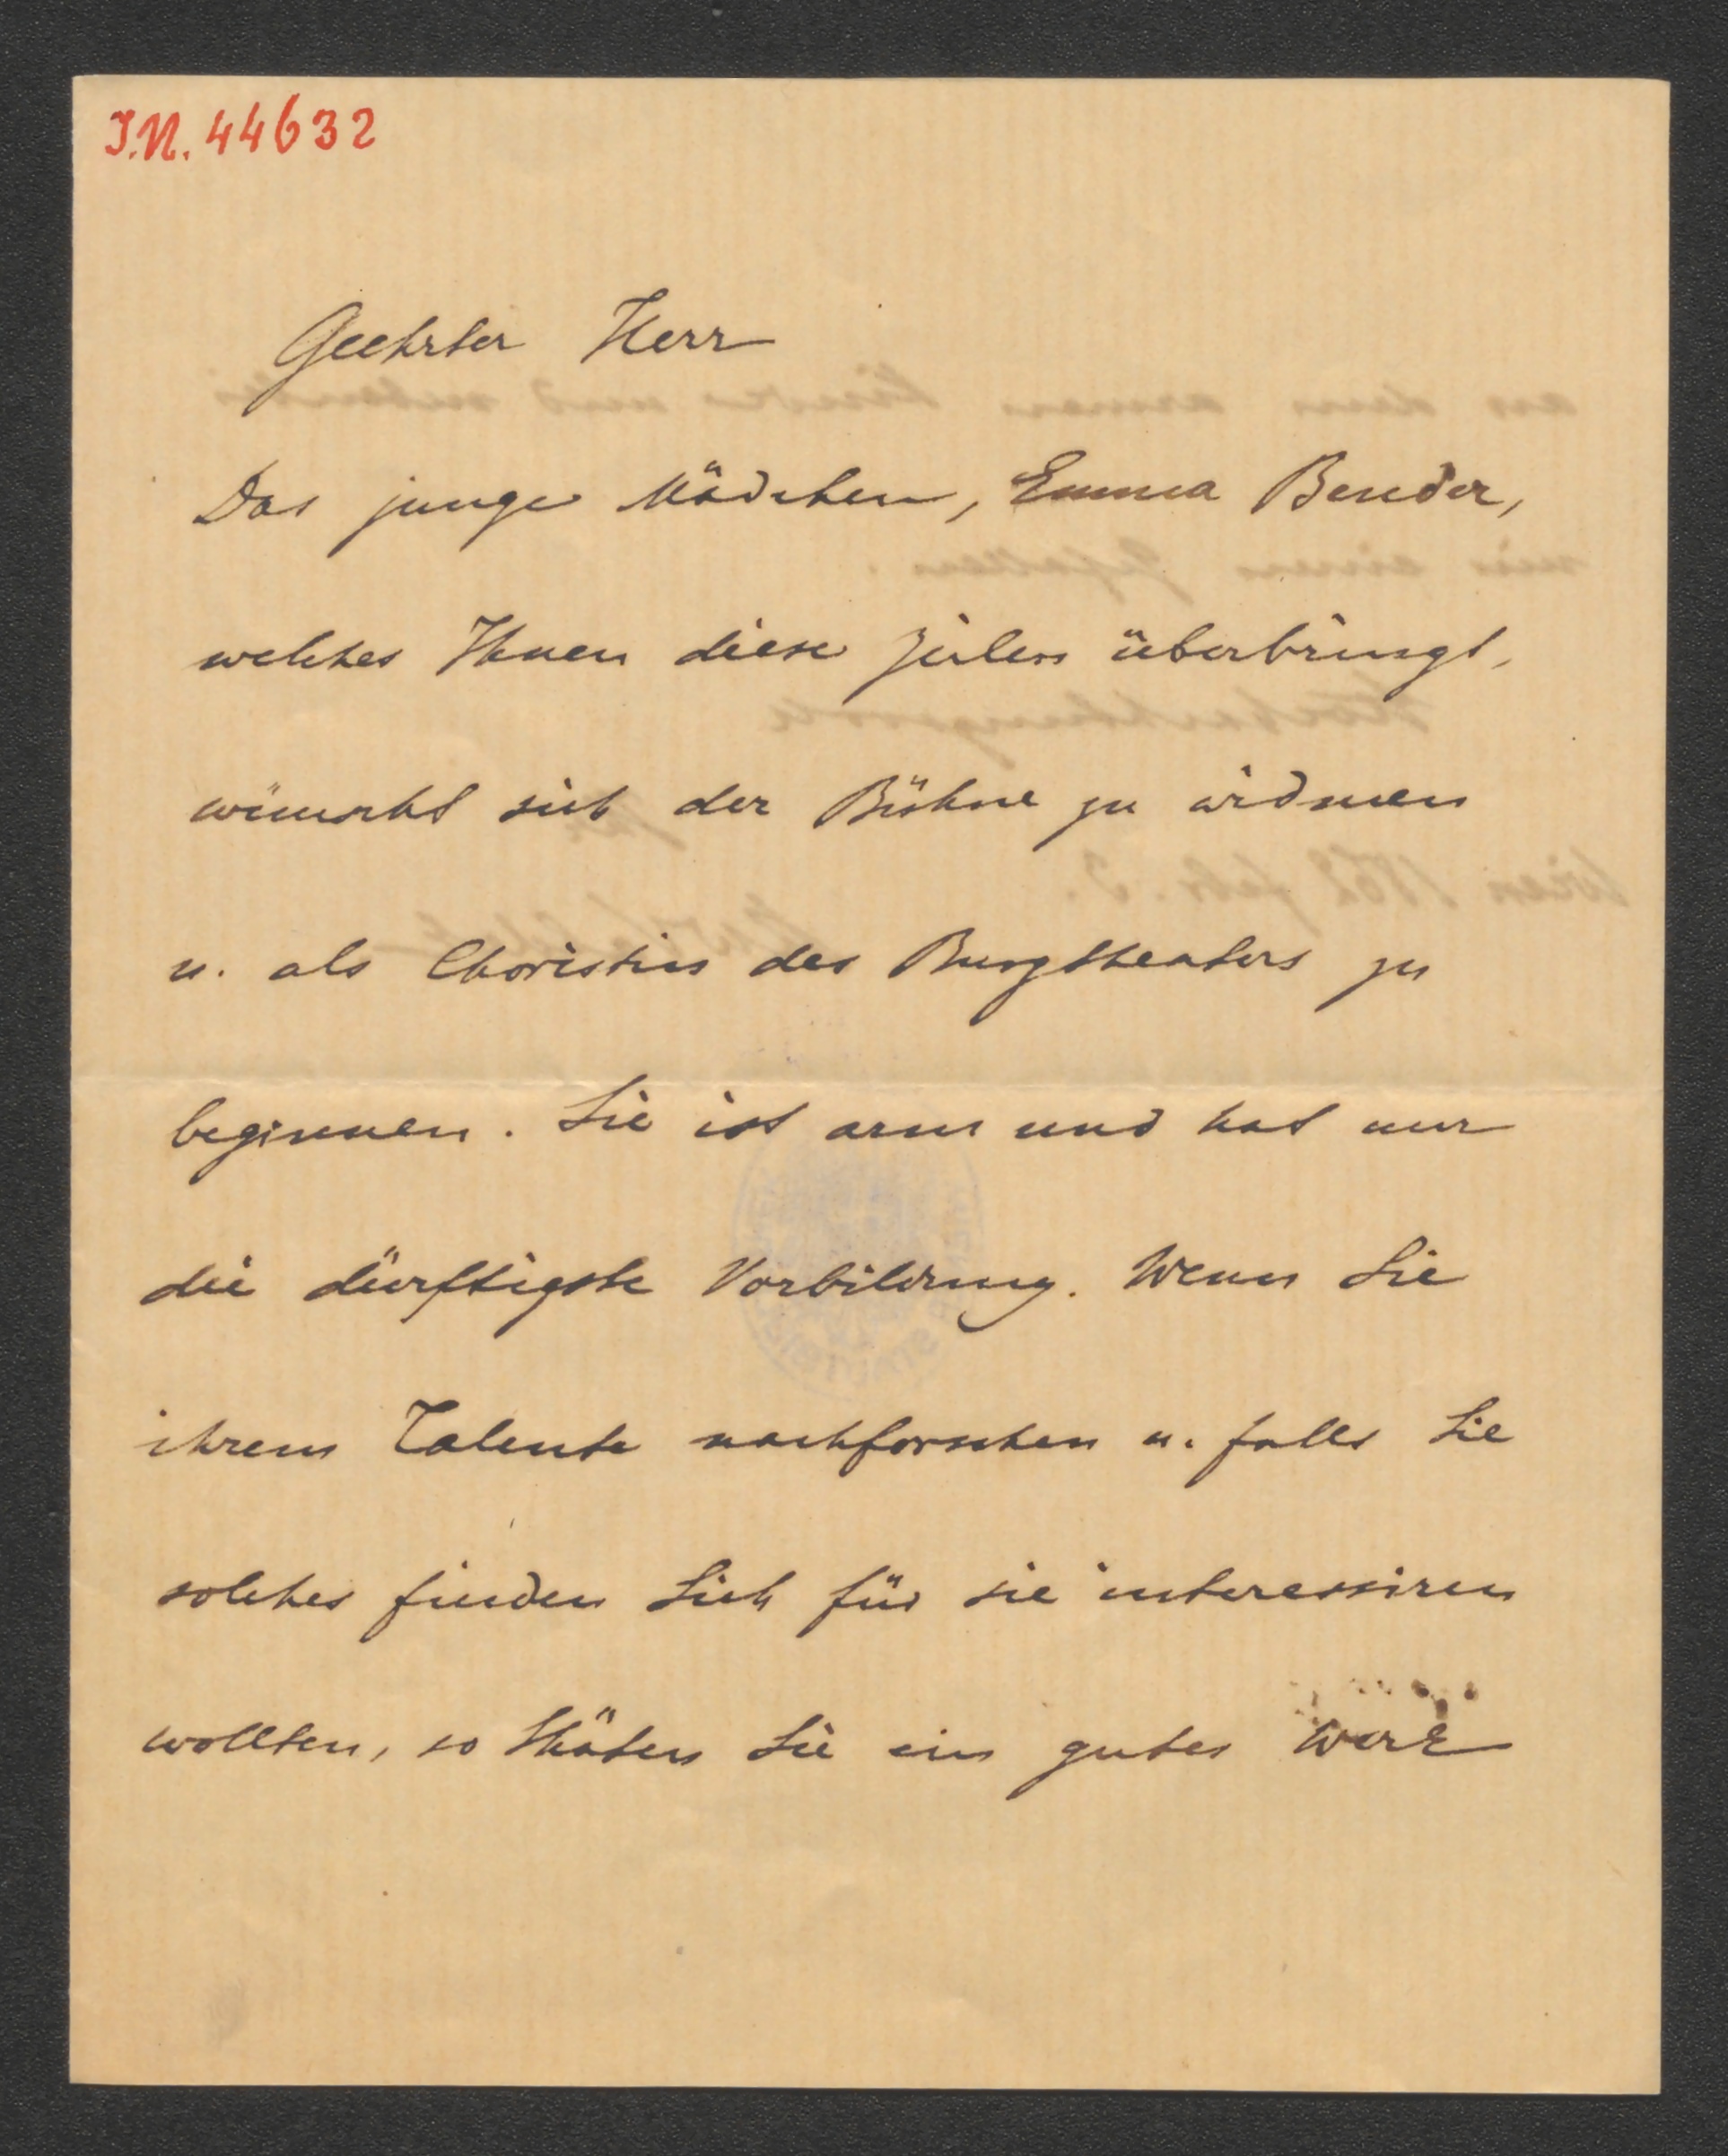 J.N. 44632
Geehrter Herr
Das junge Mädchen, Emma Bender,
welches Ihnen diese Zeilen überbringt,
wünscht sich der Bühne zu widmen
u. als Choristin des Burgtheaters zu
beginnen. Sie ist arm und hat nur
die dürftigste Vorbildung. Wenn Sie
ihrem Talente nachforschen u. falls Sie
solches finden Sich für sie interessiren
wollten, so thäten Sie ein gutes Werk